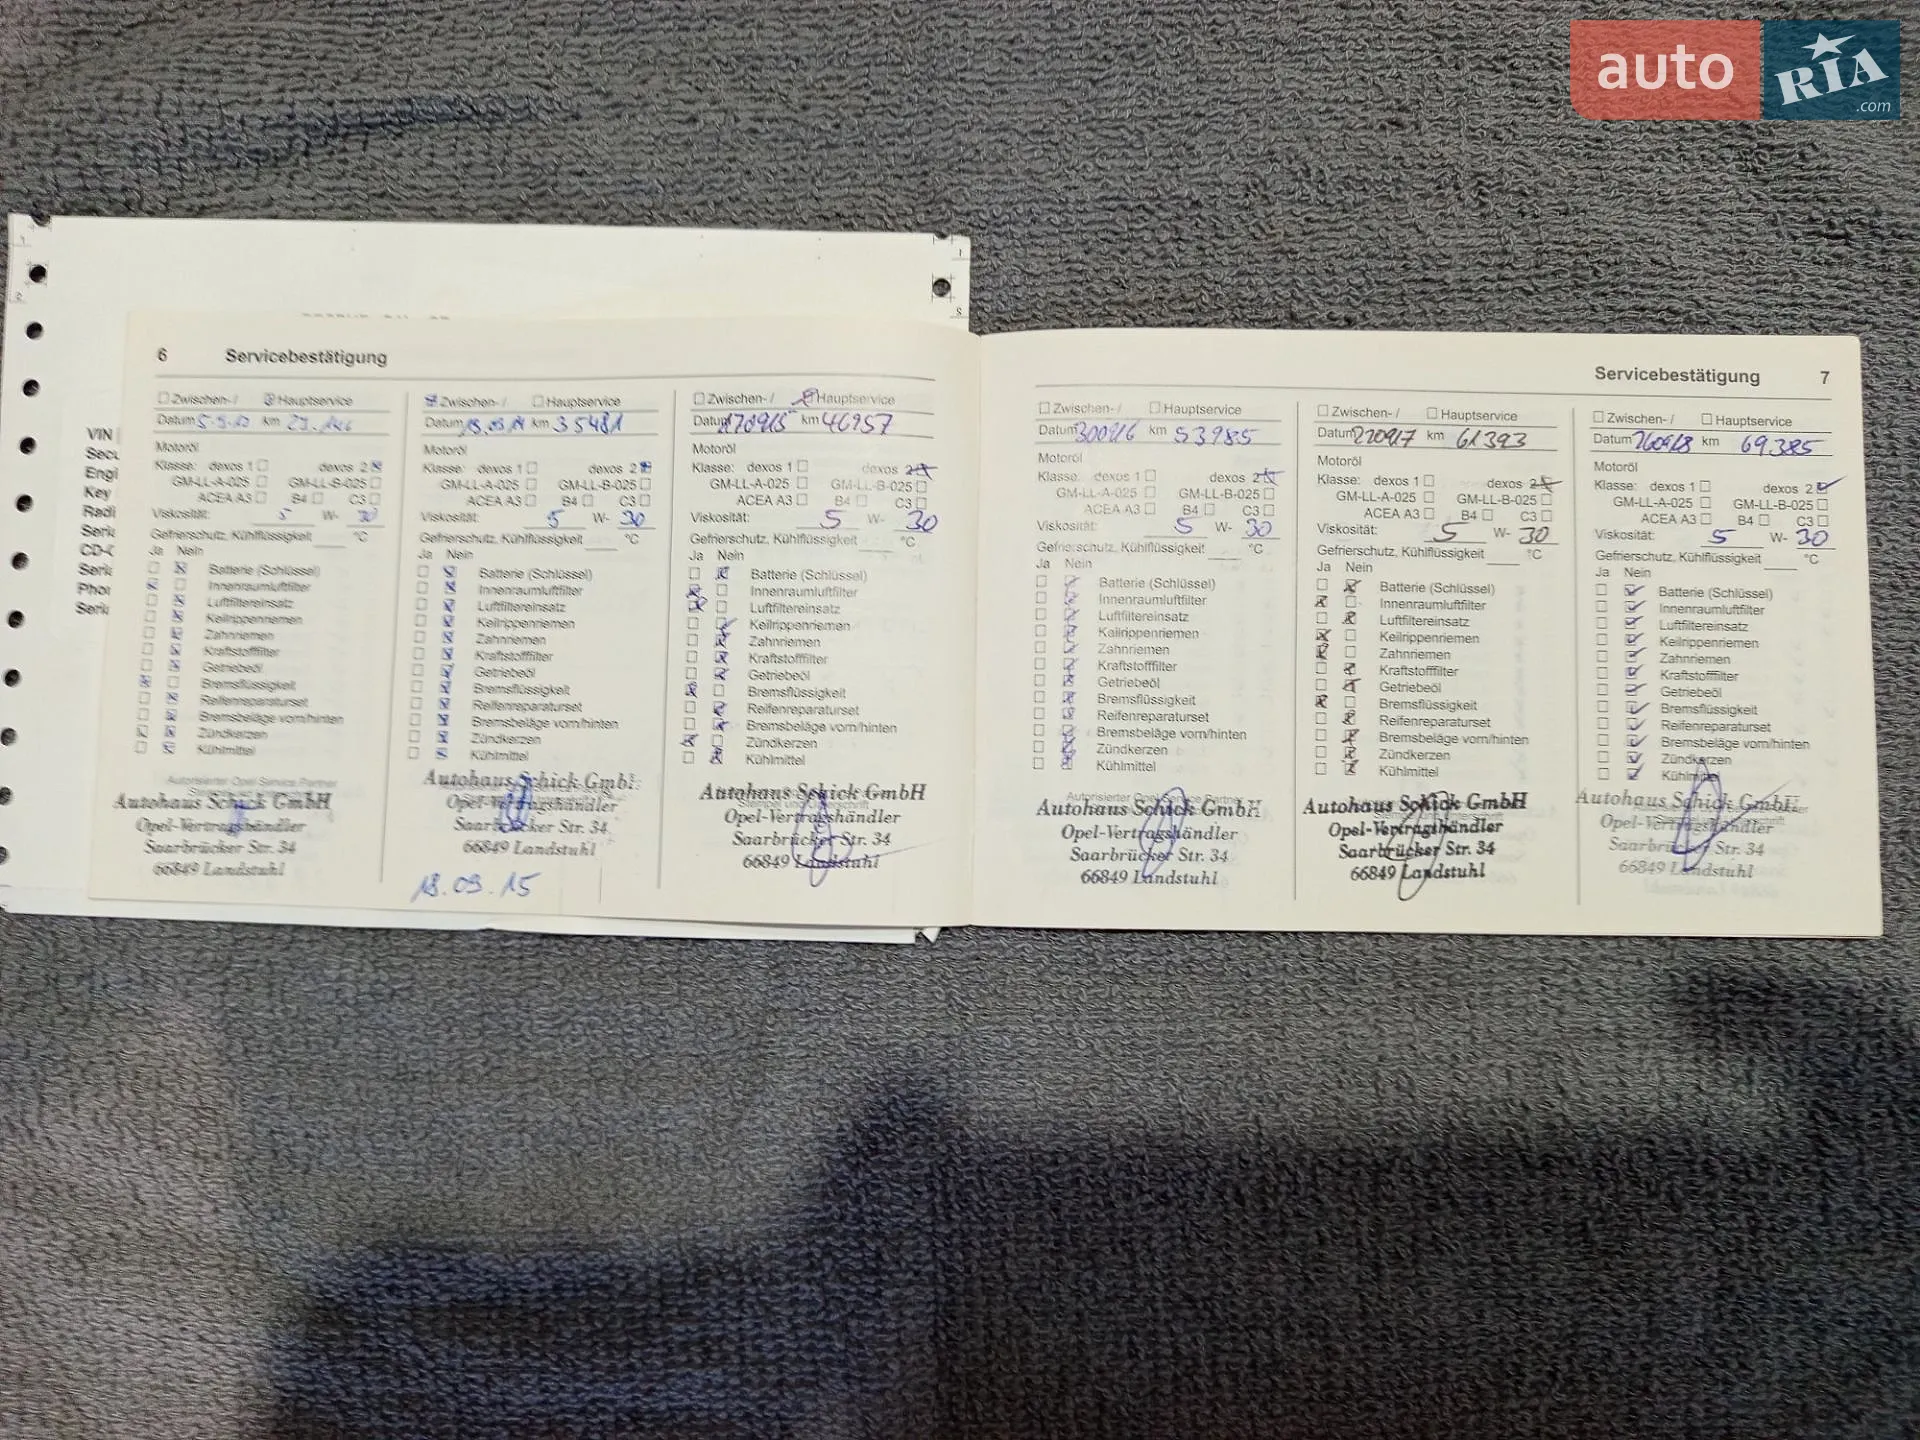 auto
RIA
.com
VIN
Secu
Engi
Key
Radi
Seria
CD-C
Seria
Phon
Seria
6 Servicebestätigung
Zwischen- / Hauptservice
Datum km
Motoröl
Klasse: dexos 1 dexos 2
GM-LL-A-025 GM-LL-B-025
ACEA A3 B4 C3
Viskosität: 5 W- 30
Gefrierschutz, Kühlflüssigkeit °C
Ja Nein
Batterie (Schlüssel)
Innenraumluftfilter
Luftfiltereinsatz
Keilrippenriemen
Zahnriemen
Kraftstofffilter
Getriebeöl
Bremsflüssigkeit
Reifenreparaturset
Bremsbeläge vorn/hinten
Zündkerzen
Kühlmittel
Autorisierter Opel Service Partner
Autohaus Schick GmbH
Opel-Vertragshändler
Saarbrücker Str. 34
66849 Landstuhl
Zwischen- / Hauptservice
Datum km 35481
Motoröl
Klasse: dexos 1 dexos 2
GM-LL-A-025 GM-LL-B-025
ACEA A3 B4 C3
Viskosität: 5 W- 30
Gefrierschutz, Kühlflüssigkeit °C
Ja Nein
Batterie (Schlüssel)
Innenraumluftfilter
Luftfiltereinsatz
Keilrippenriemen
Zahnriemen
Kraftstofffilter
Getriebeöl
Bremsflüssigkeit
Reifenreparaturset
Bremsbeläge vorn/hinten
Zündkerzen
Kühlmittel
Autohaus Schick GmbH
Opel-Vertragshändler
Saarbrücker Str. 34
66849 Landstuhl
18.09.15
Zwischen- / Hauptservice
Datum 170915 km 46957
Motoröl
Klasse: dexos 1 dexos 2
GM-LL-A-025 GM-LL-B-025
ACEA A3 B4 C3
Viskosität: 5 W- 30
Gefrierschutz, Kühlflüssigkeit °C
Ja Nein
Batterie (Schlüssel)
Innenraumluftfilter
Luftfiltereinsatz
Keilrippenriemen
Zahnriemen
Kraftstofffilter
Getriebeöl
Bremsflüssigkeit
Reifenreparaturset
Bremsbeläge vorn/hinten
Zündkerzen
Kühlmittel
Autohaus Schick GmbH
Opel-Vertragshändler
Saarbrücker Str. 34
66849 Landstuhl
Servicebestätigung 7
Zwischen- / Hauptservice
Datum 300916 km 53985
Motoröl
Klasse: dexos 1 dexos 2
GM-LL-A-025 GM-LL-B-025
ACEA A3 B4 C3
Viskosität: 5 W- 30
Gefrierschutz, Kühlflüssigkeit °C
Ja Nein
Batterie (Schlüssel)
Innenraumluftfilter
Luftfiltereinsatz
Keilrippenriemen
Zahnriemen
Kraftstofffilter
Getriebeöl
Bremsflüssigkeit
Reifenreparaturset
Bremsbeläge vorn/hinten
Zündkerzen
Kühlmittel
Autorisierter Opel Service Partner
Autohaus Schick GmbH
Opel-Vertragshändler
Saarbrücker Str. 34
66849 Landstuhl
Zwischen- / Hauptservice
Datum 220917 km 61393
Motoröl
Klasse: dexos 1 dexos 2
GM-LL-A-025 GM-LL-B-025
ACEA A3 B4 C3
Viskosität: 5 W- 30
Gefrierschutz, Kühlflüssigkeit °C
Ja Nein
Batterie (Schlüssel)
Innenraumluftfilter
Luftfiltereinsatz
Keilrippenriemen
Zahnriemen
Kraftstofffilter
Getriebeöl
Bremsflüssigkeit
Reifenreparaturset
Bremsbeläge vorn/hinten
Zündkerzen
Kühlmittel
Autohaus Schick GmbH
Opel-Vertragshändler
Saarbrücker Str. 34
66849 Landstuhl
Zwischen- / Hauptservice
Datum 260918 km 69.385
Motoröl
Klasse: dexos 1 dexos 2
GM-LL-A-025 GM-LL-B-025
ACEA A3 B4 C3
Viskosität: 5 W- 30
Gefrierschutz, Kühlflüssigkeit °C
Ja Nein
Batterie (Schlüssel)
Innenraumluftfilter
Luftfiltereinsatz
Keilrippenriemen
Zahnriemen
Kraftstofffilter
Getriebeöl
Bremsflüssigkeit
Reifenreparaturset
Bremsbeläge vorn/hinten
Zündkerzen
Kühlmittel
Autohaus Schick GmbH
Opel-Vertragshändler
Saarbrücker Str. 34
66849 Landstuhl